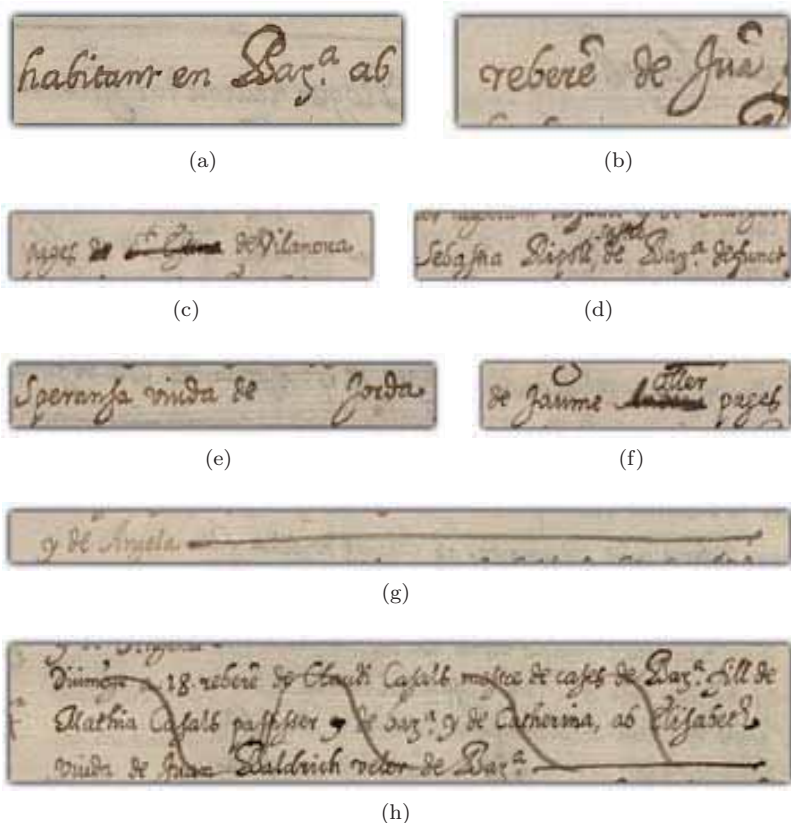 habitant en Baz.ª ab
reberē de Juā
(a)
(b)
pages de de Vilanova
Sebastia Ripoll, de Baz.ª defunct
(c)
(d)
Speransa viuda de Jorda
de Jaume aller pages
(e)
(f)
y de Angela
(g)
Diumēge a 18 reberē de Claudi Casals mestre de cases de Baz.ª fill de
Mathia Casals passser y de baz.ª y de Catherina, ab Elisabet
viuda de Juan Baldrich veler de Baz.ª
(h)